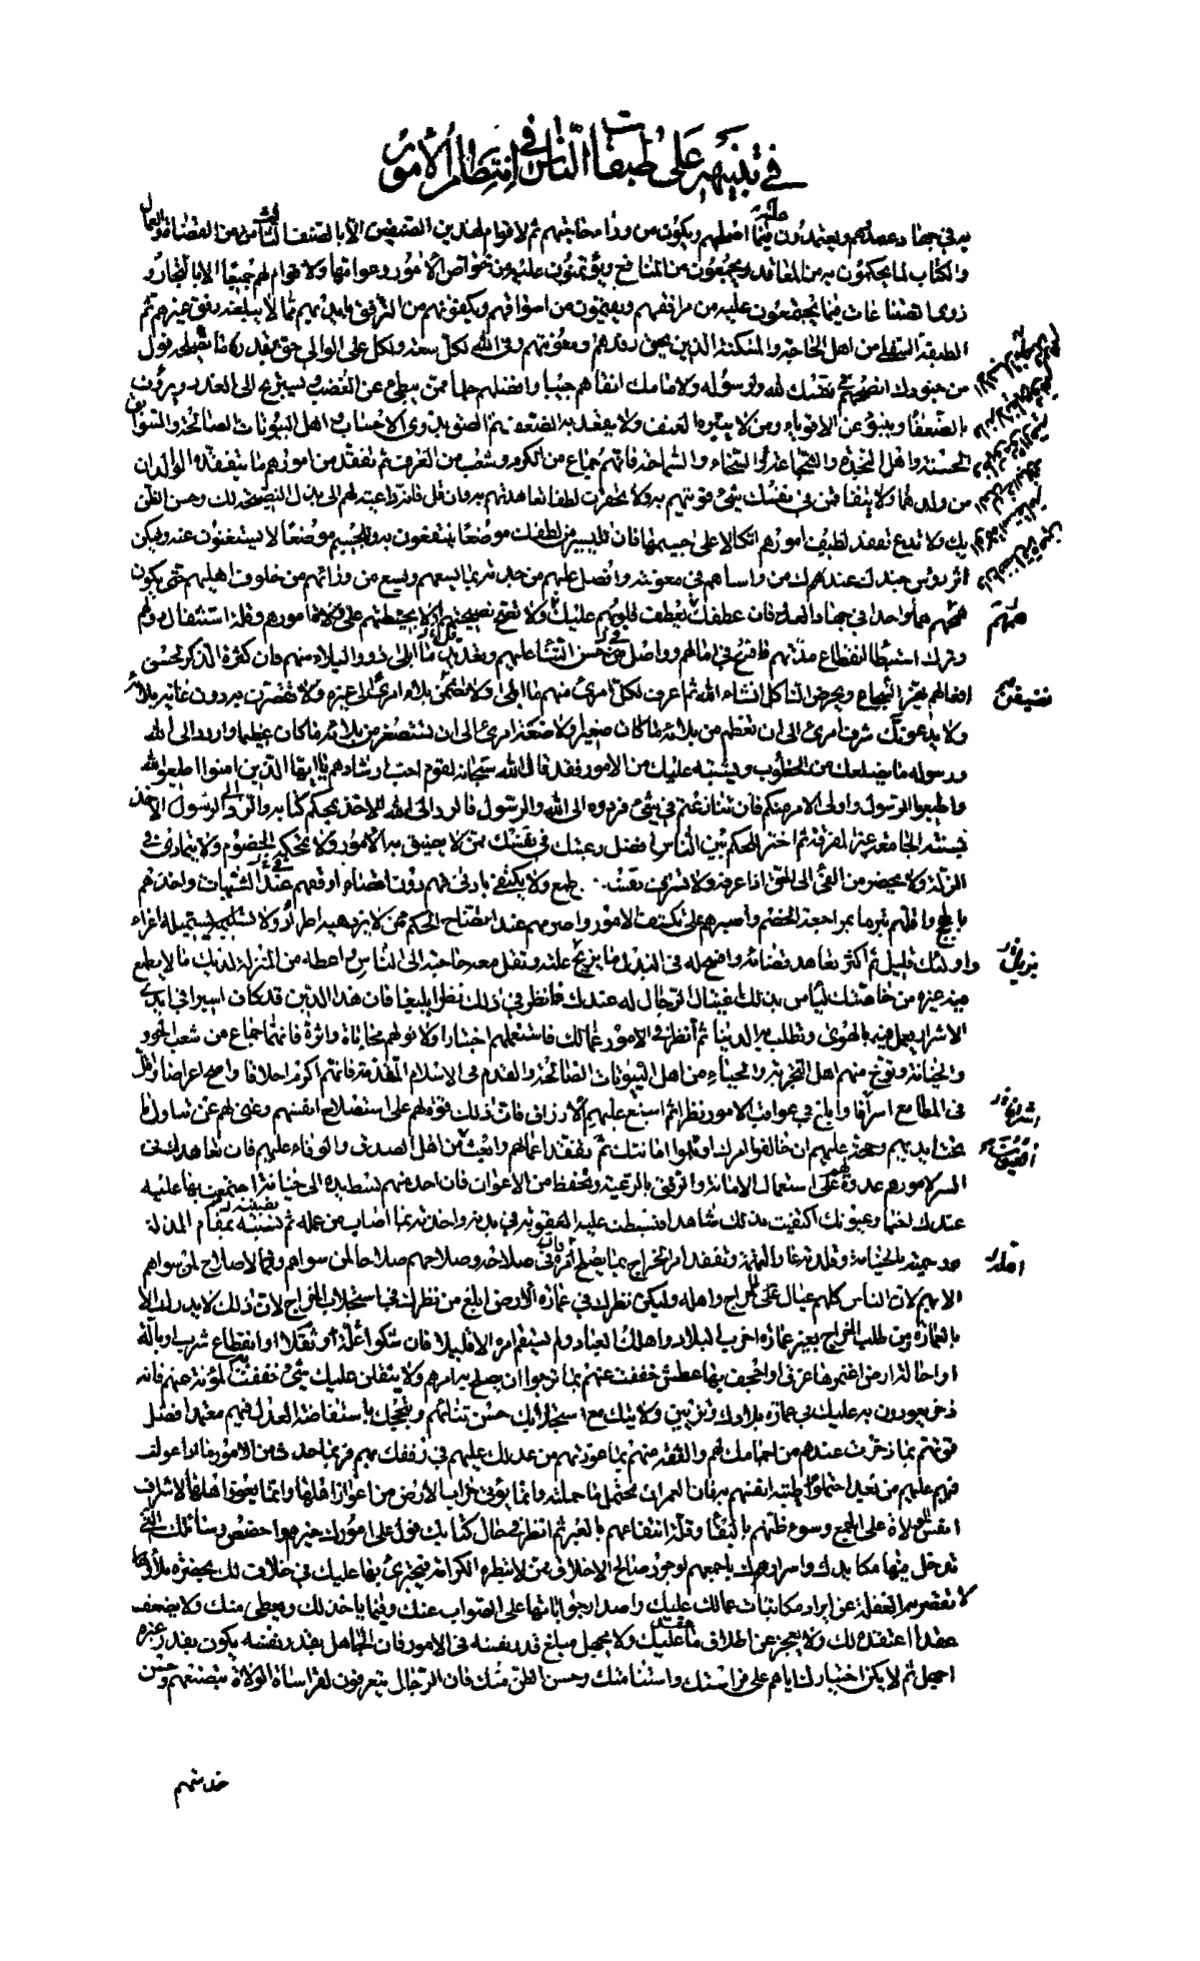 في تنبيهه على طبقات الناس في انتظام الأمور
به في جهاد عدوهم ويعتمدون عليه فيما اصلحهم ويكون من وراء حاجتهم ثم لا قوام لهذين الصنفين الا بالصنف الثالث من القضاة والعمال
والكتاب لما يحكمون به من المعاقد ويجمعون من المنافع ويؤتمنون عليه من خواص الامور وعوامها ولا قوام لهم جميعا الا بالتجار و
ذوى الصناعات فيما يجتمعون عليه من مرافقهم ويقيمون من اسواقهم ويكفونهم من الترفق بايديهم مما لا يبلغه رفق غيرهم ثم
الطبقة السفلى من اهل الحاجة والمسكنة الذين يحق رفدهم ومعونتهم وفى الله لكل سعة ولكل على الوالى حق بقدر ما يصلحه فول
من جنودك انصحهم فى نفسك لله ولرسوله ولامامك انقاهم جيبا وافضلهم حلما ممن يبطئ عن الغضب ويستريح الى العذر ويرؤف
بالضعفاء وينبو عن الاقوياء ومن لا يثيره العنف ولا يقعد به الضعف ثم الصق بذوى الاحساب واهل البيوتات الصالحة والسوابق
الحسنة واهل النجدة والشجاعة والسخاء والسماحة فانهم جماع من الكرم وشعب من العرف ثم تفقد من امورهم ما يتفقده الوالدان
من ولدهما ولا يتفاقمن فى نفسك شئ قويتهم به ولا تحقرن لطفا تعاهدتهم به وان قل فانه داعية لهم الى بذل النصيحة لك وحسن الظن
بك ولا تدع تفقد لطيف امورهم اتكالا على جسيمها فان لليسير من لطفك موضعا ينتفعون به وللجسيم موقعا لا يستغنون عنه وليكن
اثر رؤس جندك عندك من واساهم فى معونته وافضل عليهم من جدته بما يسعهم ويسع من ورائهم من خلوف اهليهم حتى يكون
همهم هما واحدا فى جهاد العدو فان عطفك عليهم يعطف قلوبهم عليك ولا تصح نصيحتهم الا بحيطتهم على ولاة امورهم وقلة استثقال دولهم
وترك استبطاء انقطاع مدتهم فافسح فى امالهم وواصل فى حسن الثناء عليهم وتعديد ما ابلى ذوو البلاء منهم فان كثرة الذكر لحسن
افعالهم تهز الشجاع وتحرض الناكل انشاء الله ثم اعرف لكل امرئ منهم ما ابلى ولا تضمن بلاء امرئ الى غيره ولا تقصرن به دون غاية بلائه
ولا يدعونك شرف امرئ الى ان تعظم من بلائه ما كان صغيرا ولا ضعة امرئ الى ان تستصغر من بلائه ما كان عظيما واردد الى الله
ورسوله ما يضلعك من الخطوب ويشتبه عليك من الامور فقد قال الله سبحانه لقوم احب ارشادهم يا ايها الذين امنوا اطيعوا الله
واطيعوا الرسول واولى الامر منكم فان تنازعتم فى شئ فردوه الى الله والرسول فالرد الى الله الاخذ بمحكم كتابه والرد الى الرسول الاخذ
بسنته الجامعة غير المفرقة ثم اختر للحكم بين الناس افضل رعيتك فى نفسك ممن لا يضيق به الامور ولا تمحكه الخصوم ولا يتمادى فى
الزلة ولا يحصر من الفئ الى الحق اذا عرفه ولا تشرف نفسه طمع ولا يكتفى بادنى فهم دون اقصاه اوقفهم عند الشبهات واخذهم
بالحجج واقلهم تبرما بمراجعة الخصم واصبرهم على تكشف الامور واصرمهم عند اتضاح الحكم ممن لا يزدهيه اطراء ولا يستميله اغراء
واولئك قليل ثم اكثر تعاهد قضائه وافسح له فى البذل ما يزيح علته وتقل معه حاجته الى الناس واعطه من المنزلة لديك ما لا يطمع
فيه غيره من خاصتك ليأمن بذلك اغتيال الرجال له عندك فانظر فى ذلك نظرا بليغا فان هذا الدين قد كان اسيرا فى ايدى
الاشرار يعمل فيه بالهوى وتطلب به الدنيا ثم انظر فى امور عمالك فاستعملهم اختبارا ولا تولهم محاباة واثرة فانهما جماع من شعب الجور
والخيانة وتوخ منهم اهل التجربة والحياء من اهل البيوتات الصالحة والقدم فى الاسلام المتقدمة فانهم اكرم اخلاقا واصح اعراضا واقل
فى المطامع اسرافا وابلغ فى عواقب الامور نظرا ثم اسبغ عليهم الارزاق فان ذلك قوة لهم على استصلاح انفسهم وغنى لهم عن تناول ما
تحت ايديهم وحجة عليهم ان خالفوا امرك او ثلموا امانتك ثم تفقد اعمالهم وابعث العيون من اهل الصدق والوفاء عليهم فان تعاهدك فى
السر لامورهم حدوة لهم على استعمال الامانة والرفق بالرعية وتحفظ من الاعوان فان احد منهم بسط يده الى خيانة اجتمعت بها عليه
عندك اخبار عيونك اكتفيت بذلك شاهدا فبسطت عليه العقوبة فى بدنه واخذته بما اصاب من عمله ثم نصبته بمقام المذلة
ووسمته بالخيانة وقلدته عار التهمة وتفقد امر الخراج بما يصلح اهله فان فى صلاحه وصلاحهم صلاحا لمن سواهم ولا صلاح لمن سواهم
الا بهم لان الناس كلهم عيال على الخراج واهله وليكن نظرك فى عمارة الارض ابلغ من نظرك فى استجلاب الخراج لان ذلك لا يدرك الا
بالعمارة ومن طلب الخراج بغير عمارة اخرب البلاد واهلك العباد ولم يستقم امره الا قليلا فان شكوا علة او ثقلا او انقطاع شرب او بالة
او احالة ارض اغتمرها غرق او اجحف بها عطش خففت عنهم بما ترجوا ان يصلح به امرهم ولا يثقلن عليك شئ خففت به المؤنة عنهم فانه
ذخر يعودون به عليك فى عمارة بلادك وتزيين ولايتك مع استجلابك حسن ثنائهم وتبجحك باستفاضة العدل فيهم معتمدا فضل
قوتهم بما ذخرت عندهم من اجمامك لهم والثقة منهم بما عودتهم من عدلك عليهم فى رفقك بهم فربما حدث من الامور ما اذا عولت
فيه عليهم من بعد احتملوا طيبة انفسهم به فان العمران محتمل ما حملته وانما يؤتى خراب الارض من اعواز اهلها وانما يعوز اهلها لاشراف
انفس الولاة على الجمع وسوء ظنهم بالبقاء وقلة انتفاعهم بالعبر ثم انظر فى حال كتابك فول على امورك خيرهم واخصص رسائلك التى
تدخل فيها مكايدك واسرارك باجمعهم لوجود صالح الاخلاق ممن لا تبطره الكرامة فيجترئ بها عليك فى خلاف لك بحضرة ملأ و
لا تقصر به الغفلة عن ايراد مكاتبات عمالك عليك واصدار جواباتها على الصواب عنك وفيما ياخذ لك ويعطى منك ولا يضعف
عقدا اعتقده لك ولا يعجز عن اطلاق ما عقد عليك ولا يجهل مبلغ قدر نفسه فى الامور فان الجاهل بقدر نفسه يكون بقدر غيره
اجهل ثم لا يكن اختيارك اياهم على فراستك واستنامتك وحسن الظن منك فان الرجال يتعرفون لفراسات الولاة بتصنعهم وحسن
خدمتهم